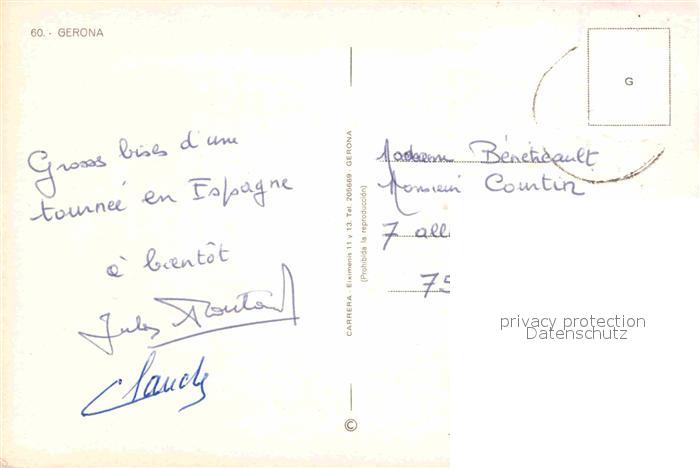 60. - GERONA
Grosses bises d'une
tournée en Espagne
à bientôt
Jules
Claude
CARRERA. Eiximenis 11 y 13. Tel. 205669. GERONA
(Prohibida la reproducción)
©
G
Madame Bénéheault
Monsieur Courtin
7 all
75
privacy protection
Datenschutz